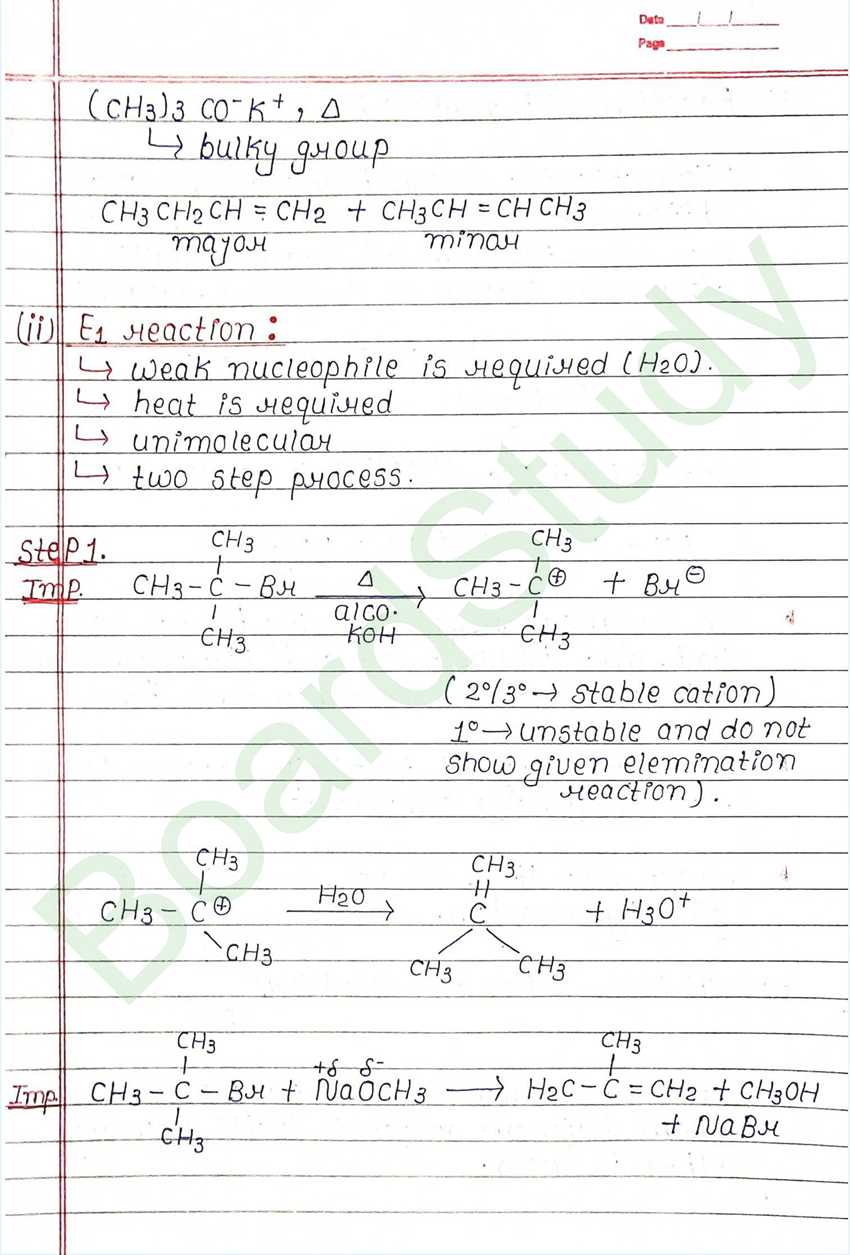 Date / /
Page
(CH3)3 CO⁻K⁺, Δ
↳ bulky group
CH3CH2CH = CH2 + CH3CH = CHCH3
mayor minar
(ii) E1 reaction :
↳ weak nucleophile is required (H2O).
↳ heat is required
↳ unimolecular
↳ two step process.
CH3 CH3
Step 1.
Imp. CH3 – C – Br Δ → CH3 – C⊕ + Br⊖
alco.
CH3 KOH CH3
(2°/3° → stable cation)
1° → unstable and do not
show given elemination
reaction).
CH3 CH3
CH3 – C⊕ H2O → C + H3O⁺
CH3 CH3 CH3
CH3 CH3
+δ δ-
Imp. CH3 – C – Br + NaOCH3 → H2C – C = CH2 + CH3OH
CH3 + NaBr
BoardStudy